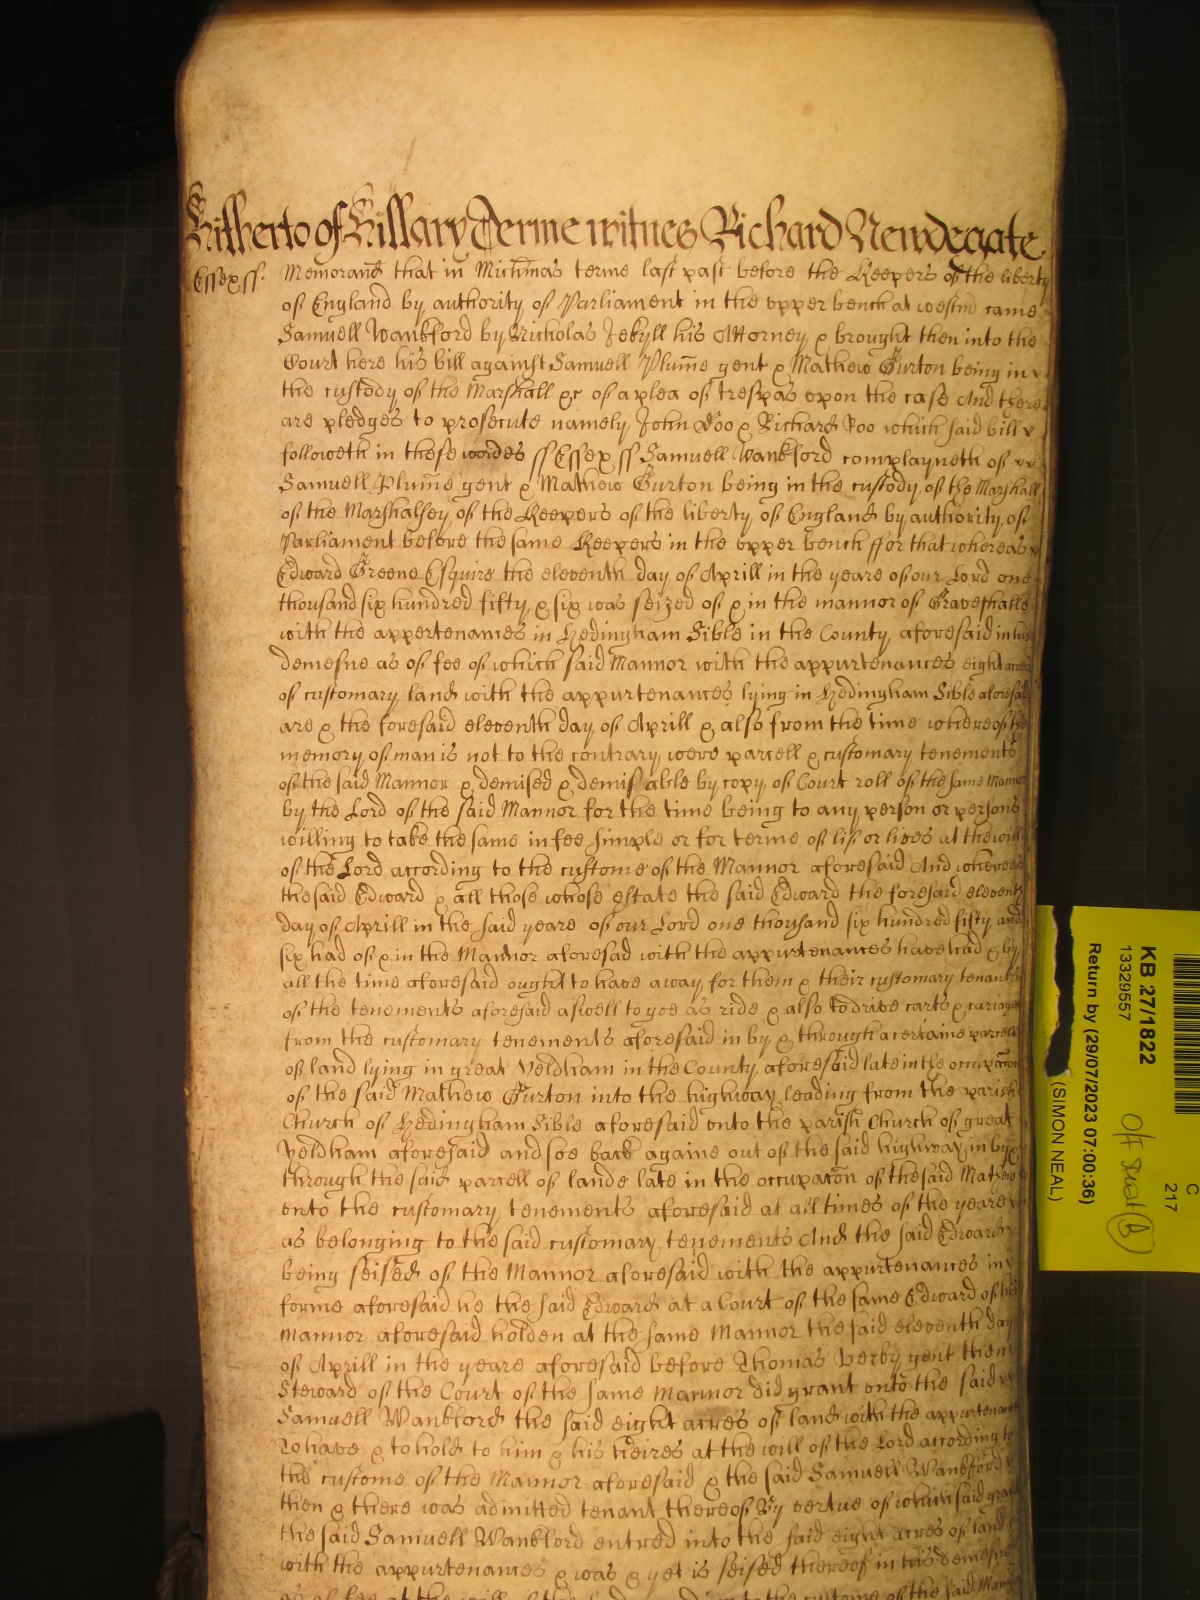 Hitherto of Hillary Terme witnes Richard Newdegate
Essex ss. Memorand that in Michmas terme last past before the Keepers of the liberty
of England by authority of Parliament in the upper bench at westm came
Samuell Wankford by Nicholas Jekyll his Attorney & brought then into the
Court here his bill against Samuell Plume gent & Mathew Gurton being in
the custody of the Marshall &c of a plea of trespas upon the case And there
are pledges to prosecute namely John Doo & Richard Roo which said bill
followeth in these wordes ss Essex ss Samuell Wankford complayneth of
Samuell Plume gent & Mathew Gurton being in the custody of the Marshall
of the Marshalsey of the Keepers of the liberty of England by authority of
Parliament before the same Keepers in the upper bench ffor that whereas
Edward Greene Esquire the eleventh day of Aprill in the yeare of our Lord one
thousand six hundred fifty & six was seized of & in the mannor of Graveshalls
with the appertenances in Hedingham Sible in the County aforesaid in his
demesne as of fee of which said Mannor with the appurtenances eight acres
of customary land with the appurtenances lying in Hedingham Sible aforesaid
are & the foresaid eleventh day of Aprill & also from the time whereof the
memory of man is not to the contrary were parcell & customary tenements
of the said Mannor & demised & demisable by copy of Court roll of the same Mannor
by the Lord of the said Mannor for the time being to any person or persons
willing to take the same in fee simple or for terme of life or lives at the will
of the Lord according to the custome of the Mannor aforesaid And whereas
the said Edward & all those whose estate the said Edward the foresaid eleventh
day of Aprill in the said yeare of our Lord one thousand six hundred fifty and
six had of & in the Mannor aforesad with the appurtenances have had & by
all the time aforesaid ought to have a way for them & their customary tenants
of the tenements aforesaid aswell to goe as ride & also to drive carts & cariages
from the customary tenements aforesaid in by & through a certaine parcell
of land lying in great Yeldham in the County aforesaid late in the occupacon
of the said Mathew Gurton into the highway leading from the parish
Church of Hedingham Sible aforesaid unto the parish Church of great
Yeldham aforesaid and soe back againe out of the said highway in by &
through the said parcell of lande late in the occupacon of the said Mathew
unto the customary tenements aforesaid at all times of the yeare
as belonging to the said customary tenements And the said Edward
being seised of the Mannor aforesaid with the appurtenances in
forme aforesaid he the said Edward at a Court of the same Edward of his
Mannor aforesaid holden at the same Mannor the said eleventh day
of Aprill in the yeare aforesaid before Thomas Verby gent then
Steward of the Court of the same Mannor did grant unto the said
Samuell Wankford the said eight acres of land with the appurtenances
To have & to hold to him & his heires at the will of the Lord according to
the custome of the Mannor aforesaid & the said Samuell Wankford
then & there was admitted tenant thereof By vertue of which said grant
the said Samuell Wankford entred into the said eight acres of land
with the appurtenances & was & yet is seised thereof in his demesne
as of fee at the will of the to the custome of the said Mannor
KB 27/1822
13329557
Return by (29/07/2023 07:00:36)
(SIMON NEAL)
C
217